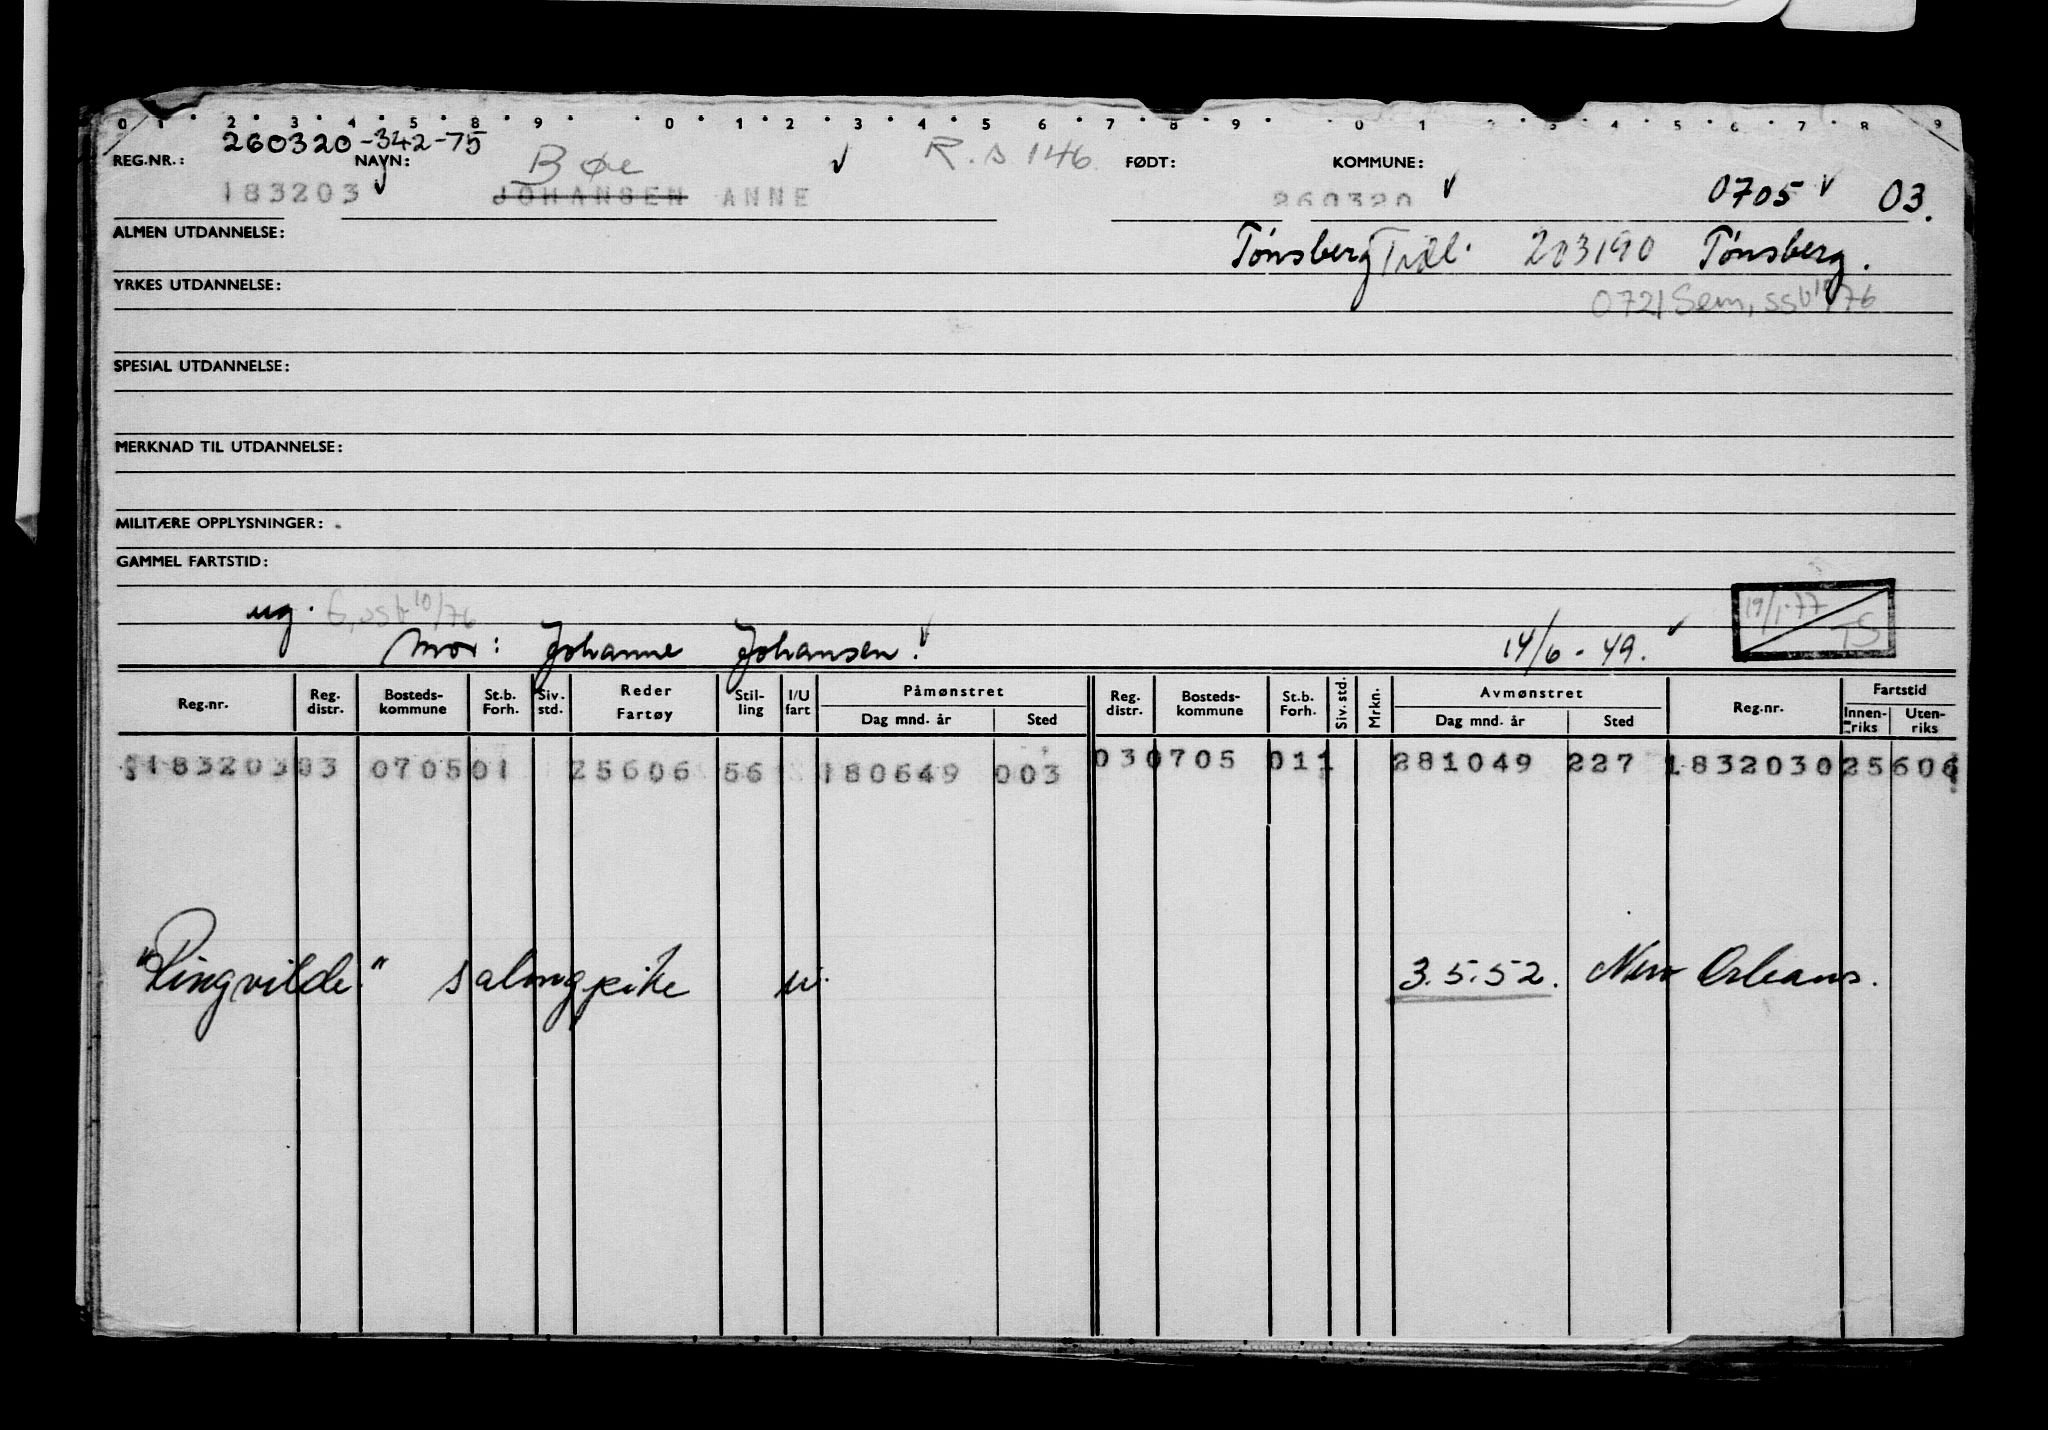 0 1 2 3 4 5 8 9 0 1 2 3 4 5 6 7 8 9 0 1 2 3 4 5 6 7 8 9
260320-342-75
REG.NR.: NAVN: Bøe R.s 146 FØDT: KOMMUNE:
183203 JOHANSEN ANNE 260320 0705 03.
ALMEN UTDANNELSE: Tønsberg 203190 Tønsberg.
YRKES UTDANNELSE: 0721 Sem, ssb 10/76
SPESIAL UTDANNELSE:
MERKNAD TIL UTDANNELSE:
MILITÆRE OPPLYSNINGER:
GAMMEL FARTSTID:
ug. G, ssb 10/76 19/1-77 TS
Mor: Johanne Johansen. 14/6-49.
Reg.nr. Reg. distr. Bosteds-kommune St.b. Forh. Siv. std. Reder Fartøy Stil-ling I/U fart Påmønstret Dag mnd. år Sted Reg. distr. Bosteds-kommune St.b. Forh. Siv. std. Mrkn. Avmønstret Dag mnd. år Sted Reg.nr. Fartstid Innen-riks Uten-riks
18320303 070501 25606 56 180649 003 030705 011 281049 227 1832030 25606
"Ringvilde" salongpike u. 3.5.52. New Orleans.